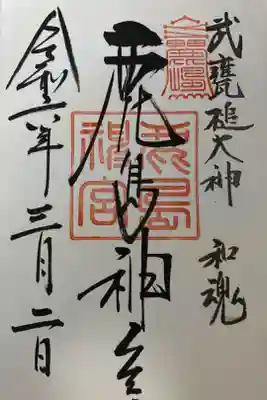 武甕槌大神 和魂
鹿島神宮
鹿島
神宮
令和六年三月二日